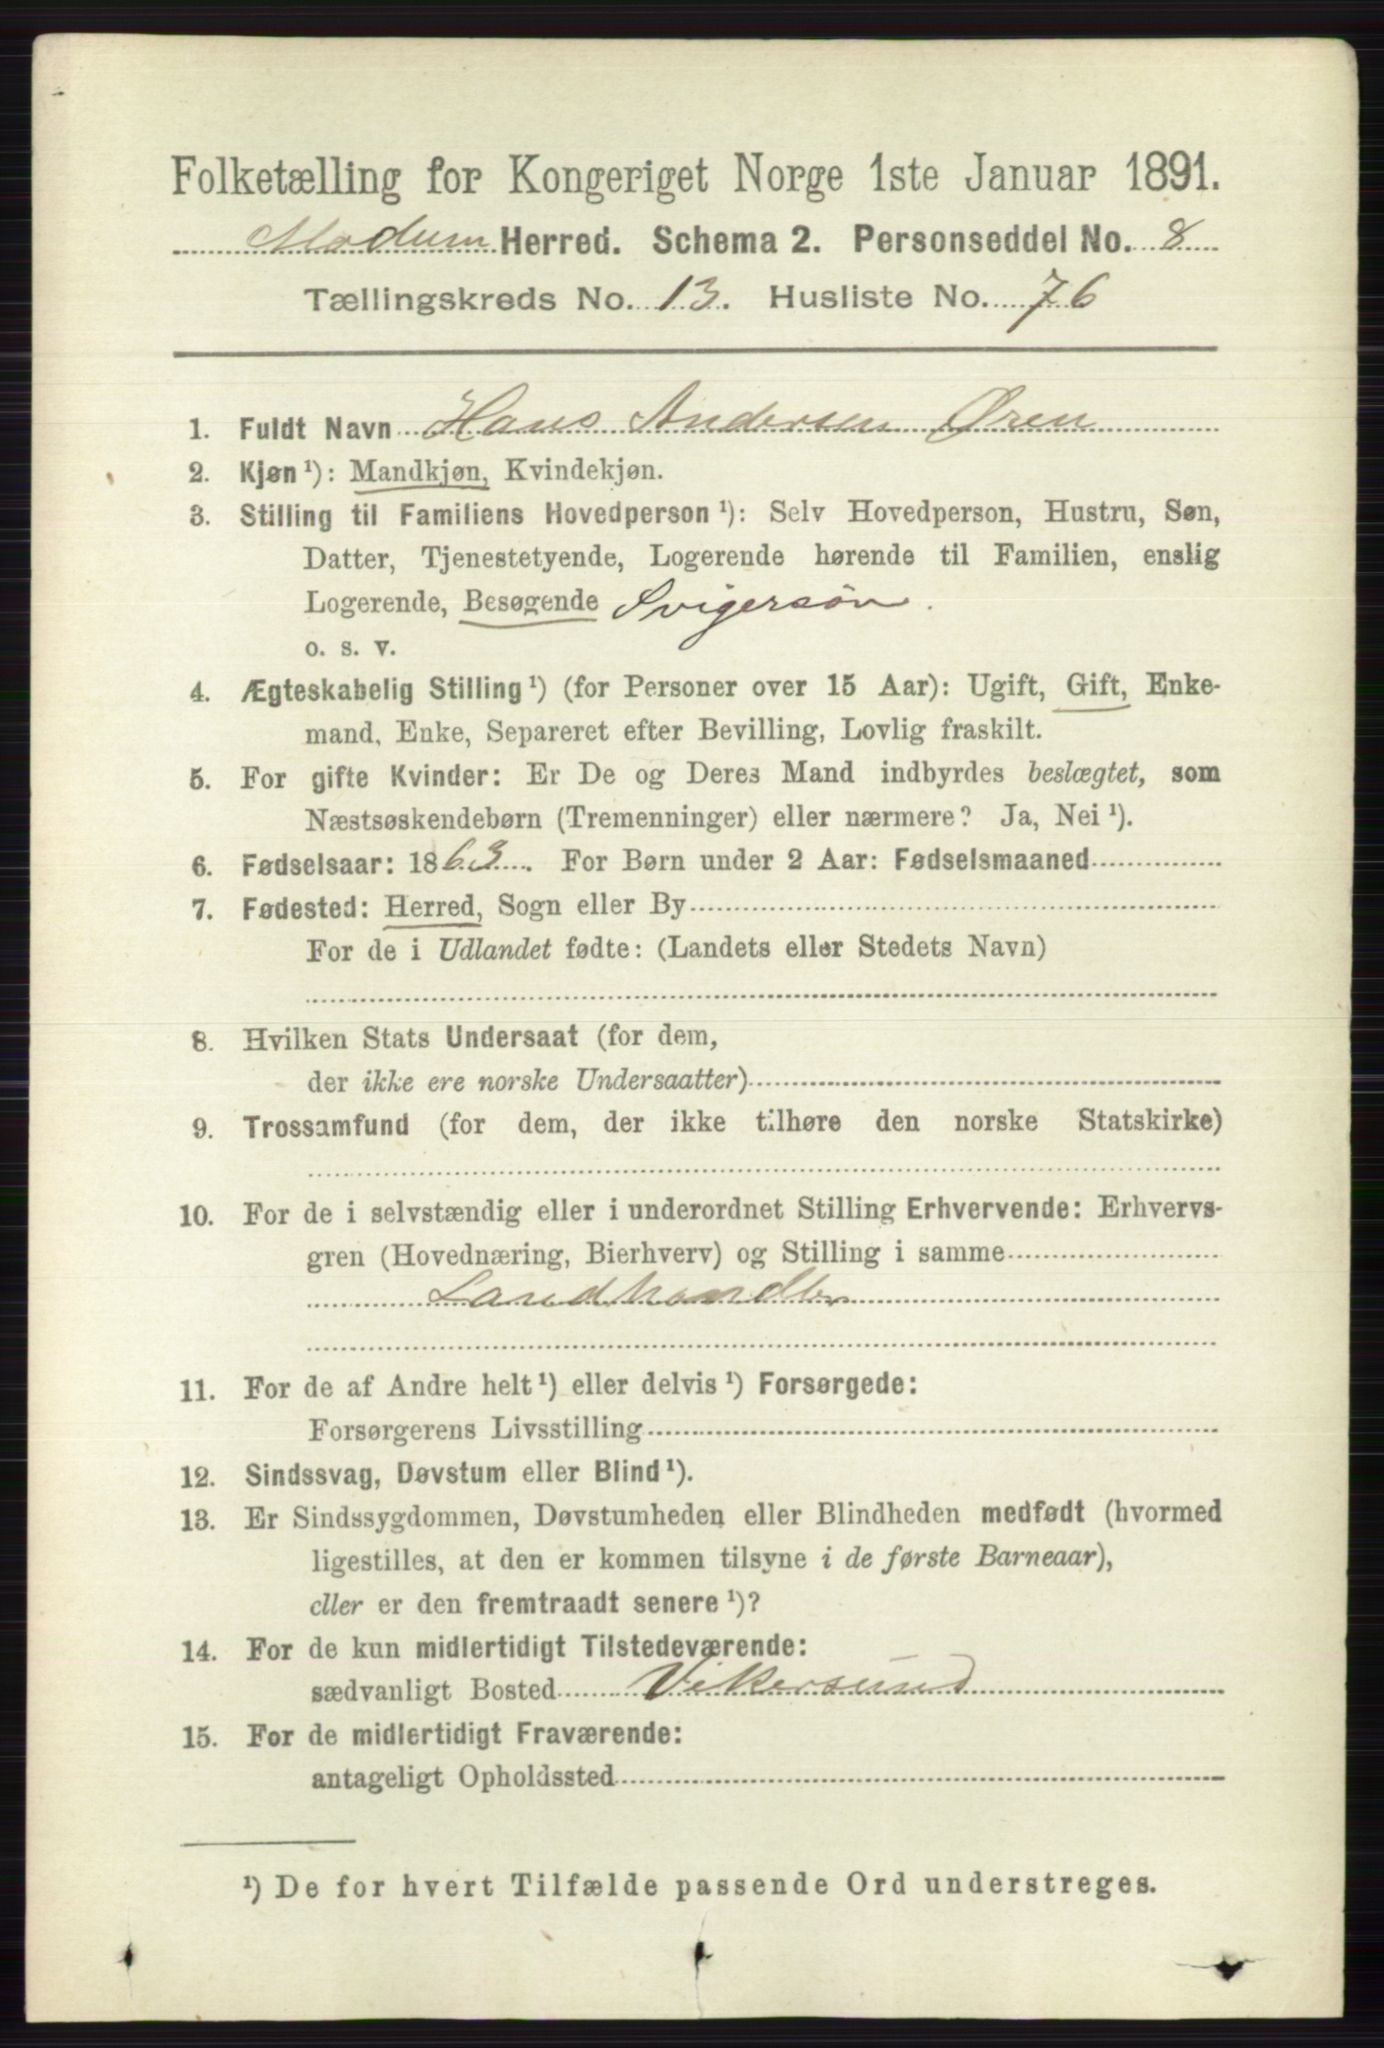 Folketælling for Kongeriget Norge 1ste Januar 1891.
Modum Herred. Schema 2. Personseddel No. 8
Tællingskreds No. 13. Husliste No. 76
1. Fuldt Navn Hans Andersen Øren
2. Kjøn ¹): Mandkjøn, Kvindekjøn.
3. Stilling til Familiens Hovedperson ¹): Selv Hovedperson, Hustru, Søn,
Datter, Tjenestetyende, Logerende hørende til Familien, enslig
Logerende, Besøgende Svigersøn.
o. s. v.
4. Ægteskabelig Stilling ¹) (for Personer over 15 Aar): Ugift, Gift, Enke-
mand, Enke, Separeret efter Bevilling, Lovlig fraskilt.
5. For gifte Kvinder: Er De og Deres Mand indbyrdes beslægtet, som
Næstsøskendebørn (Tremenninger) eller nærmere? Ja, Nei ¹).
6. Fødselsaar: 1863. For Børn under 2 Aar: Fødselsmaaned
7. Fødested: Herred, Sogn eller By
For de i Udlandet fødte: (Landets eller Stedets Navn)
8. Hvilken Stats Undersaat (for dem,
der ikke ere norske Undersaatter)
9. Trossamfund (for dem, der ikke tilhøre den norske Statskirke)
10. For de i selvstændig eller i underordnet Stilling Erhvervende: Erhvervs-
gren (Hovednæring, Bierhverv) og Stilling i samme
Landhandler
11. For de af Andre helt ¹) eller delvis ¹) Forsørgede:
Forsørgerens Livsstilling
12. Sindssvag, Døvstum eller Blind ¹).
13. Er Sindssygdommen, Døvstumheden eller Blindheden medfødt (hvormed
ligestilles, at den er kommen tilsyne i de første Barneaar),
eller er den fremtraadt senere ¹)?
14. For de kun midlertidigt Tilstedeværende:
sædvanligt Bosted Vikersund
15. For de midlertidigt Fraværende:
antageligt Opholdssted
¹) De for hvert Tilfælde passende Ord understreges.